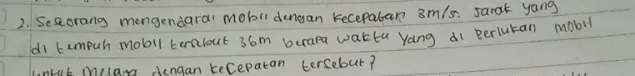 2. Seseorang mengendarai mobil dengan kecepatan 3m/s. Jarak yang
di tempuh mobil tersebut 36m berapa waktu yang di perlukan mobil
untuk melaju dengan kecepatan tersebut?